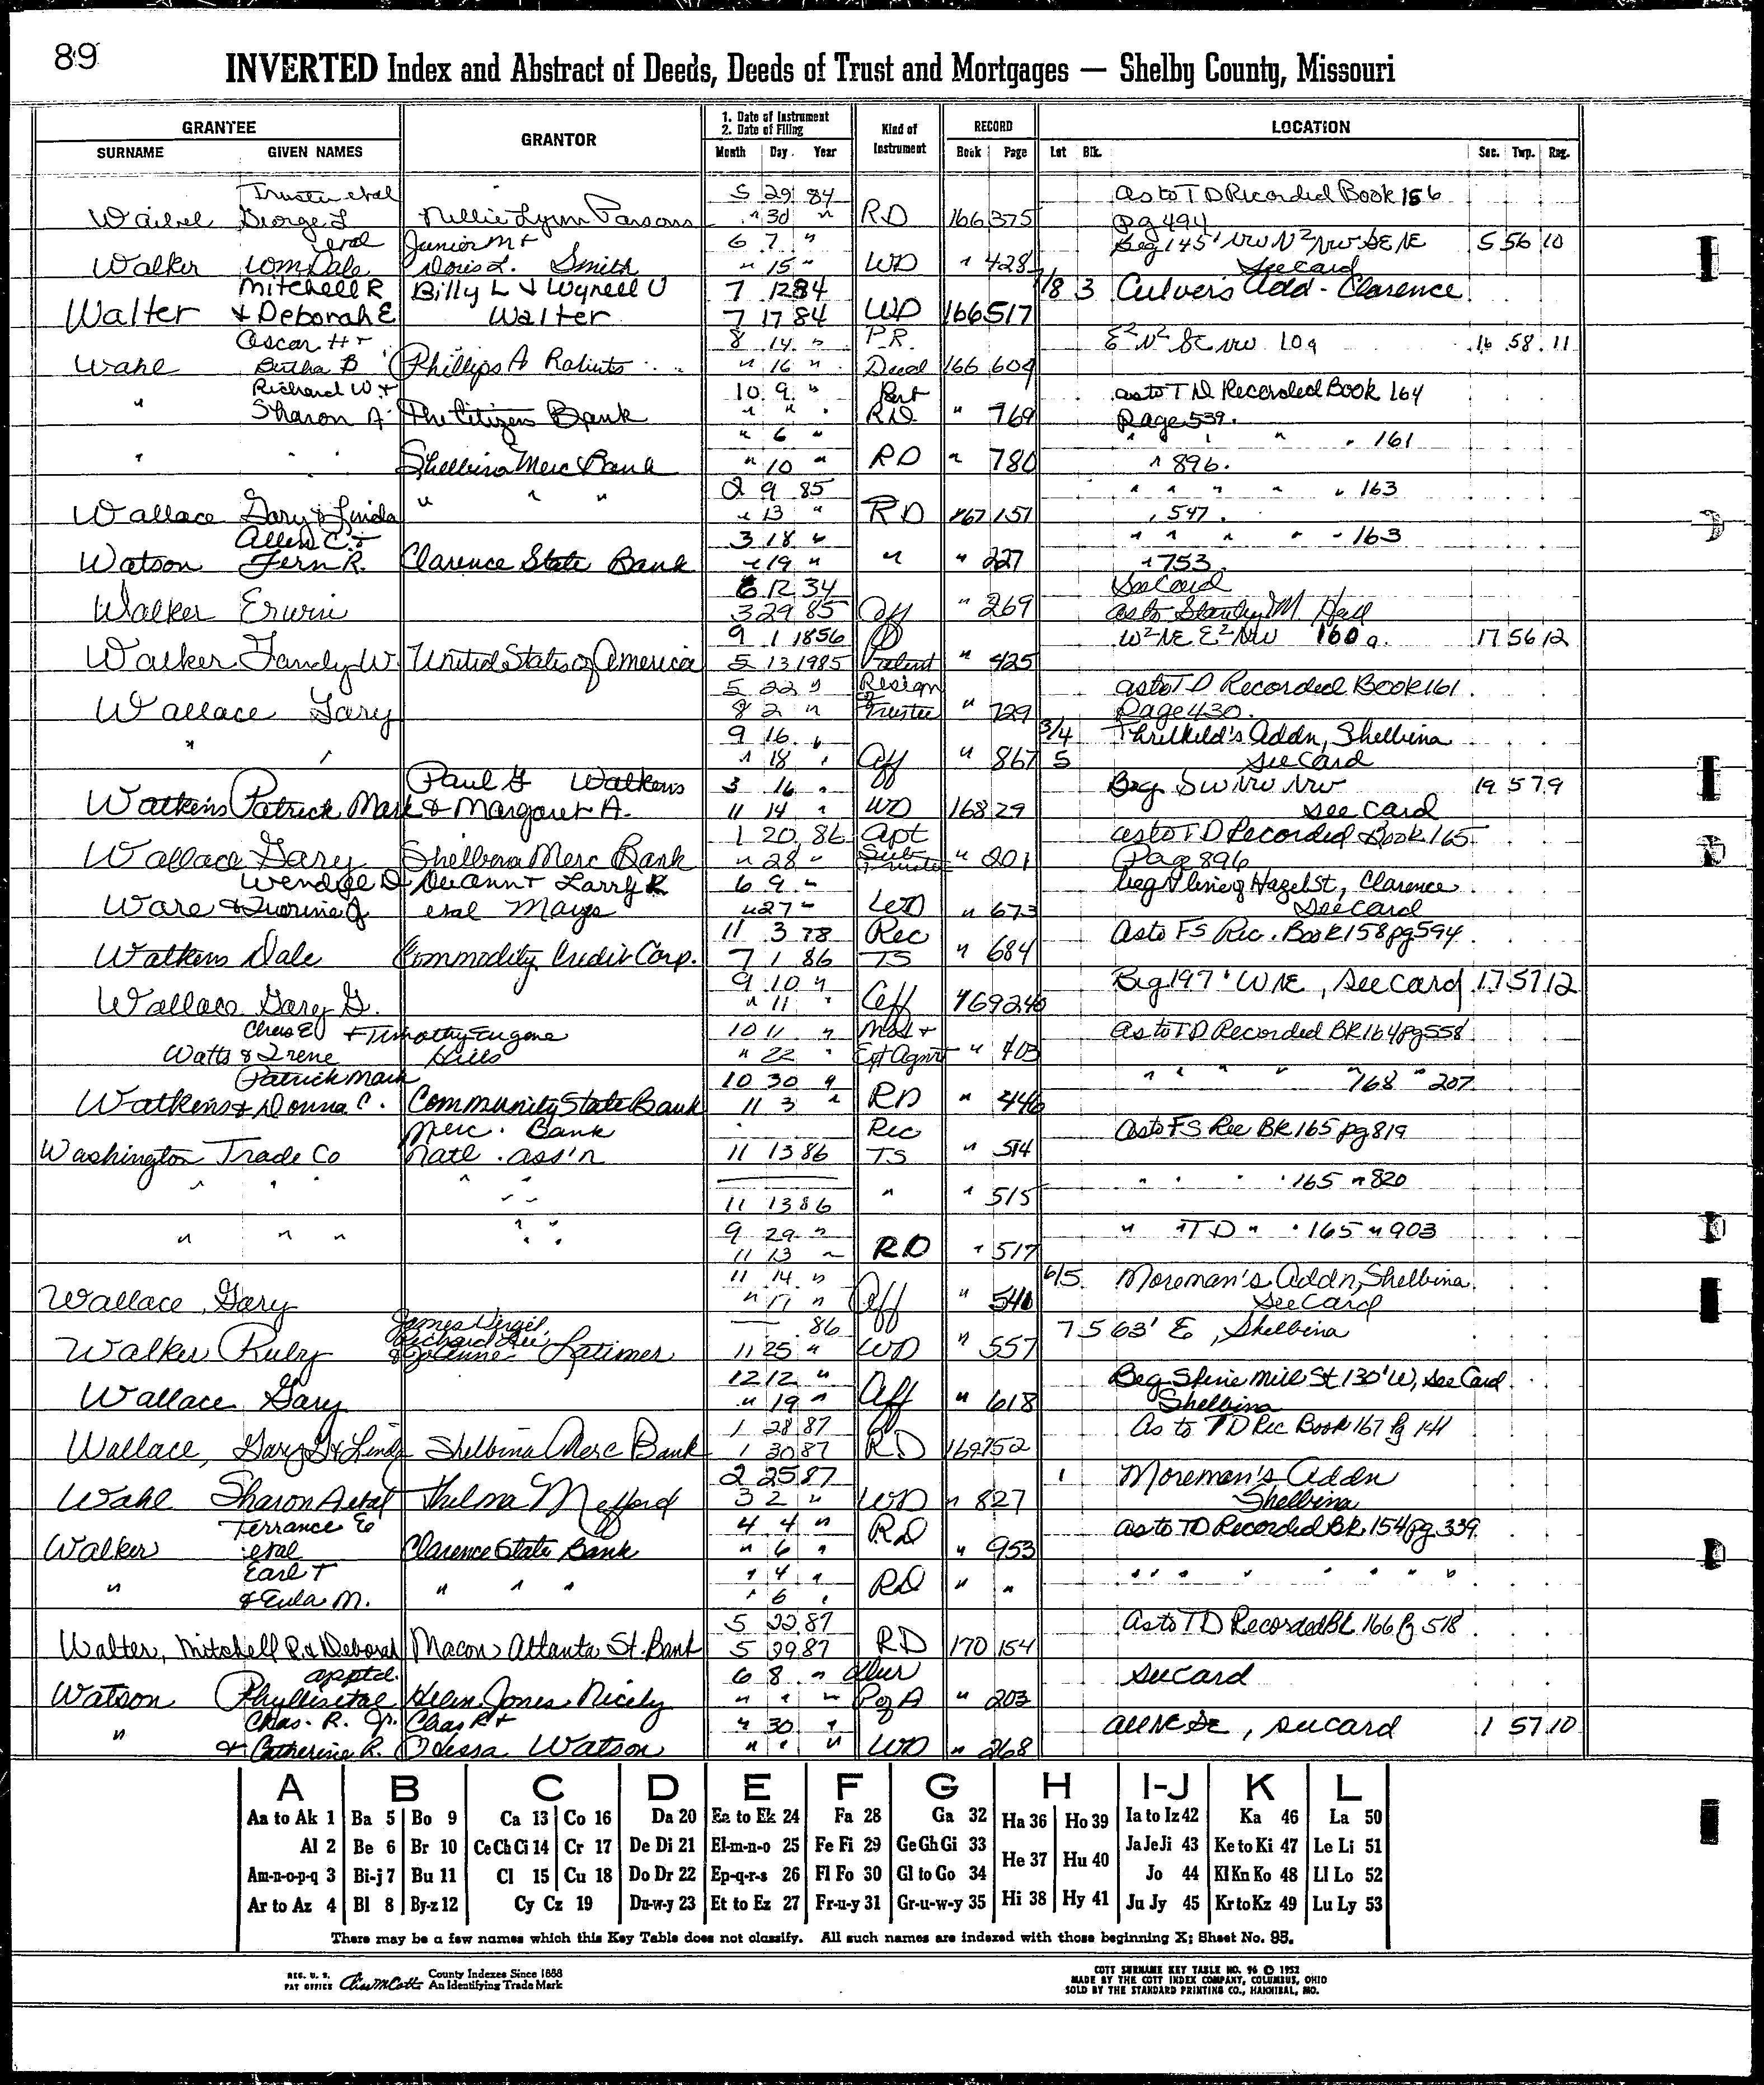 89
INVERTED Index and Abstract of Deeds, Deeds of Trust and Mortgages — Shelby County, Missouri
GRANTEE GRANTOR 1. Date of Instrument 2. Date of Filing Kind of Instrument RECORD LOCATION
SURNAME GIVEN NAMES Month Day Year Book Page Lot Blk. Sec. Twp. Rng.
Trustee etal 5 29 84 as to TD Recorded Book 156
George L Nellie Lynn Parsons " 30 " RD 166 375 pg 494
etal Junior M + 6 7 " Beg 145' NW N2 NW SE NE 5 56 10
Walker Wm Dale Doris L. Smith " 15 " WD " 428 see card
Mitchell R Billy L & Wynell U 7 12 84 7/8 3 Culver's Add - Clarence
Walter & Deborah E Walter 7 17 84 WD 166 517
Oscar H + 8 14 " P.R. E2 N2 SE NW 10a 16 58 11
Wahl Bertha B Phillips A Roberts " 16 " Deed 166 604
Richard W. + 10 9 " Part as to TD Recorded Book 164
" Sharon A The Citizens Bank " " " RD " 769 Page 539.
" 6 " " " " " 161
" " " Shelbina Merc Bank " 10 " RD " 780 " 896.
" " " 2 9 85 " " " " " 163
Wallace Gary & Linda " 13 " RD 167 151 " 547.
Allen C. + 3 18 " " " " " " 163
Watson Fern R. Clarence State Bank " 19 " " " 227 " 753
6 12 34 See Card
Walker Erwin 3 29 85 Aff " 269 as to Stanley M Hall
9 1 1856 W2 NE E2 NW 160 a. 17 56 12
Walker Tandy W. United States of America 5 13 1985 Patent " 425
5 22 " Resign as to TD Recorded Book 161
Wallace Gary 8 2 " Trustee " 729 Page 430.
9 16 " 3/4 Thrilkeld's Addn, Shelbina
" " " 18 " Aff " 867 5 see Card
Paul G Watkins 3 16 " Beg SW NW NW 19 57 9
Watkins Patrick Mark & Margaret A. 11 14 " WD 168 29 see card
1 20 86 Apt as to TD Recorded Book 165
Wallace Gary Shelbina Merc Bank " 28 " Sub Trustee " 201 Page 896
Wendel D DeAnn + Larry R 6 9 " beg N line of Hazel St, Clarence
Ware & Twrine J etal Mays " 27 " WD " 673 see card
11 3 78 Rec As to FS Rec. Book 158 pg 594
Watkins Dale Commodity Credit Corp. 7 1 86 TS " 684
9 10 " Beg 197' W NE, see card 17 57 12
Wallace Gary G. " 11 " Aff 169 240
Chas E + Timothy Eugene 10 11 " Mod + As to TD Recorded BK 164 pg 558
Watts & Irene " 22 " Ext Agmt " 403
Patrick Mark 10 30 " " " " " 168 " 207
Watkins & Donna C. Community State Bank 11 3 " RD " 446
Merc. Bank Rec As to FS Rec BK 165 pg 819
Washington Trade Co Natl. Ass'n 11 13 86 TS " 514
" " " " " " " " 165 " 820
" " 11 13 86 " " 515
" " " " " 9 29 " " " TD " " 165 " 903
" " 11 13 " RD " 517
11 14 " 6/5 Moreman's Addn, Shelbina
Wallace, Gary " 17 " Aff " 540 See Card
James Vergil, 86 7 5 63' E, Shelbina
Richard Lee,
Walker Ruby & Latimer 11 25 " WD " 557
12 12 " Beg S line Mill St 130' W, see Card
Wallace Gary " 19 " Aff " 618 Shelbina
1 28 87 As to TD Rec Book 167 Pg 141
Wallace, Gary G & Linda Shelbina Merc Bank 1 30 87 RD 169 752
2 25 87 1 Moreman's Addn
Wahl Sharon A etal Thelma Mefford 3 2 " WD " 827 Shelbina
Terrance E 4 4 " RD as to TD Recorded Bk 154 pg 339
Walker etal Clarence State Bank " 6 " " 953
Earl T " 4 " " " " " " " " "
" & Eula M. " " " " 6 " RD " "
5 22 87 As to TD Recorded Bk 166 Pg 518
Walter, Mitchell R. & Deborah Macon Atlanta St. Bank 5 29 87 RD 170 154
apptd. 6 8 " Dur see card
Watson Phyllis etal Helen Jones Nicely " " " P of A " 203
Chas. R. Jr. Chas R + " 30 " All NE SE, see card 1 57 10
" & Catherine R. Odessa Watson " " " WD " 268
A B C D E F G H I-J K L
Aa to Ak 1 Ba 5 Bo 9 Ca 13 Co 16 Da 20 Ea to Ek 24 Fa 28 Ga 32 Ha 36 Ho 39 Ia to Iz 42 Ka 46 La 50
Al 2 Be 6 Br 10 Ce Ch Ci 14 Cr 17 De Di 21 El-m-n-o 25 Fe Fi 29 Ge Gh Gi 33 He 37 Hu 40 Ja Je Ji 43 Ke to Ki 47 Le Li 51
Am-n-o-p-q 3 Bi-j 7 Bu 11 Cl 15 Cu 18 Do Dr 22 Ep-q-r-s 26 Fl Fo 30 Gl to Go 34 Jo 44 Kl Kn Ko 48 Ll Lo 52
Ar to Az 4 Bl 8 By-z 12 Cy Cz 19 Du-w-y 23 Et to Ez 27 Fr-u-y 31 Gr-u-w-y 35 Hi 38 Hy 41 Ju Jy 45 Kr to Kz 49 Lu Ly 53
There may be a few names which this Key Table does not classify. All such names are indexed with those beginning X; Sheet No. 95.
REG. U. S. PAT OFFICE County Indexes Since 1888 An Identifying Trade Mark
COTT SURNAME KEY TABLE NO. 96 © 1952
MADE BY THE COTT INDEX COMPANY, COLUMBUS, OHIO
SOLD BY THE STANDARD PRINTING CO., HANNIBAL, MO.